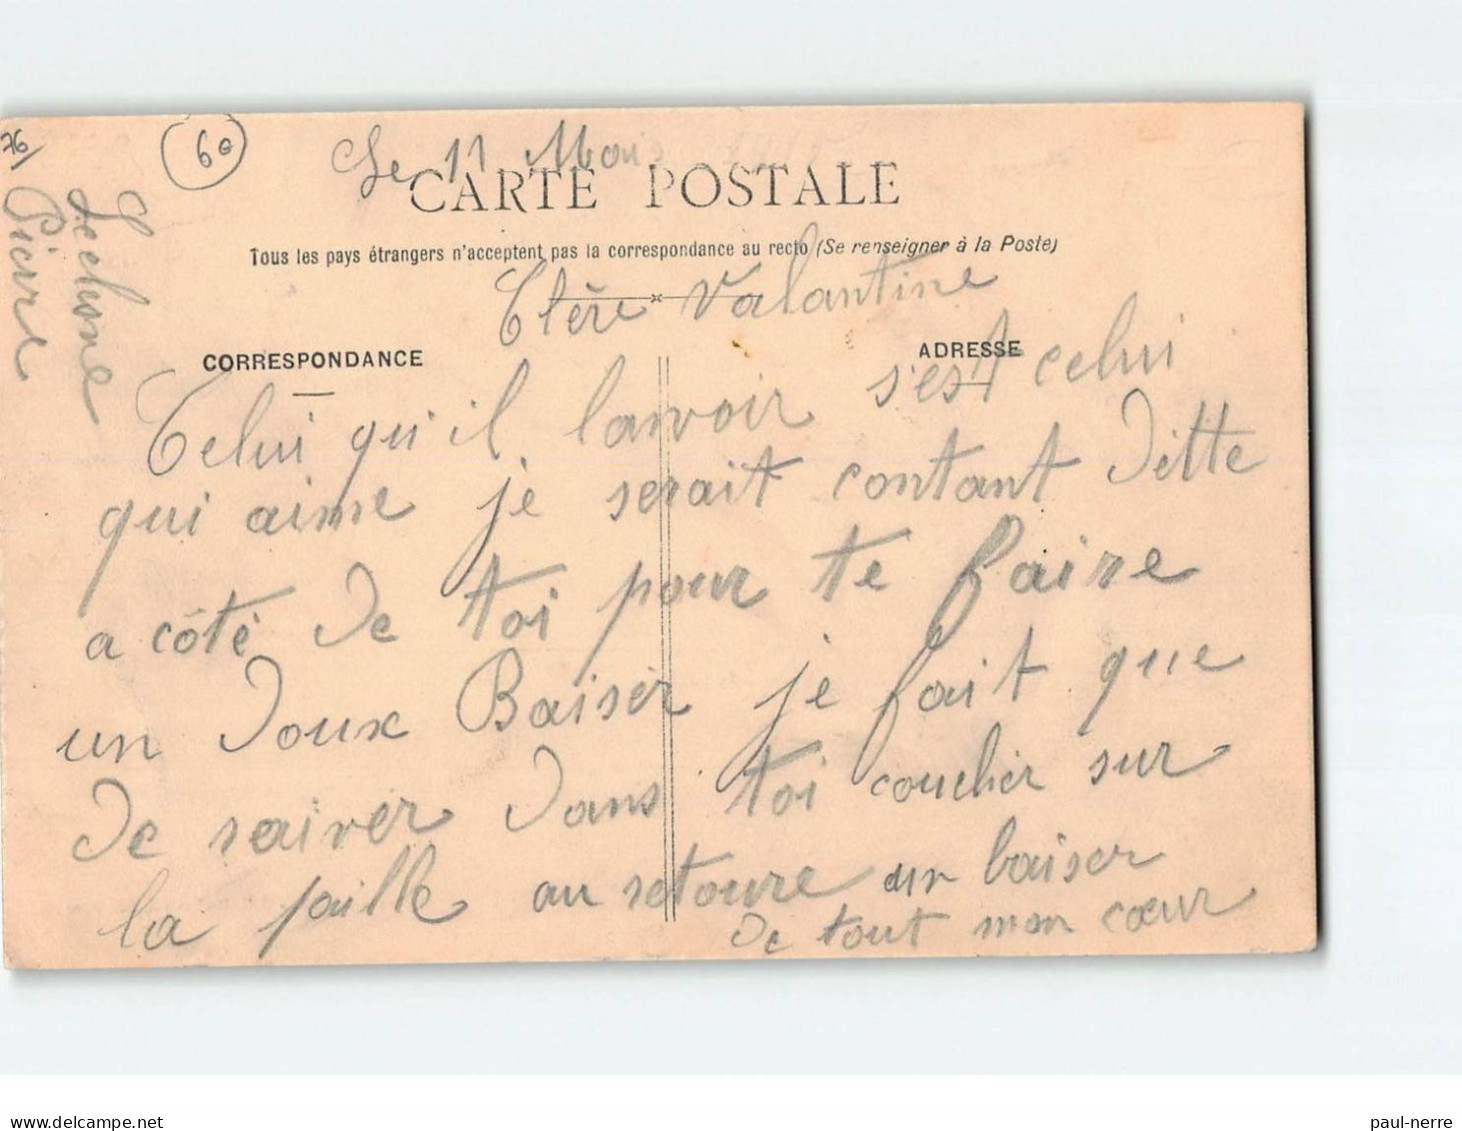 76/
60
Le 11 Mars
CARTE POSTALE
Tous les pays étrangers n'acceptent pas la correspondance au recto (Se renseigner à la Poste)
Clère Valantine
CORRESPONDANCE
ADRESSE
Celui qu'il lavoir s'est celui
qui aime je serait contant d'itte
a côté de toi pour te faire
un doux Baiser je fait que
de raiver dans toi coucher sur
la paille au retoure un baiser
de tout mon cœur
Pierre
delcampe.net
paul-nerre